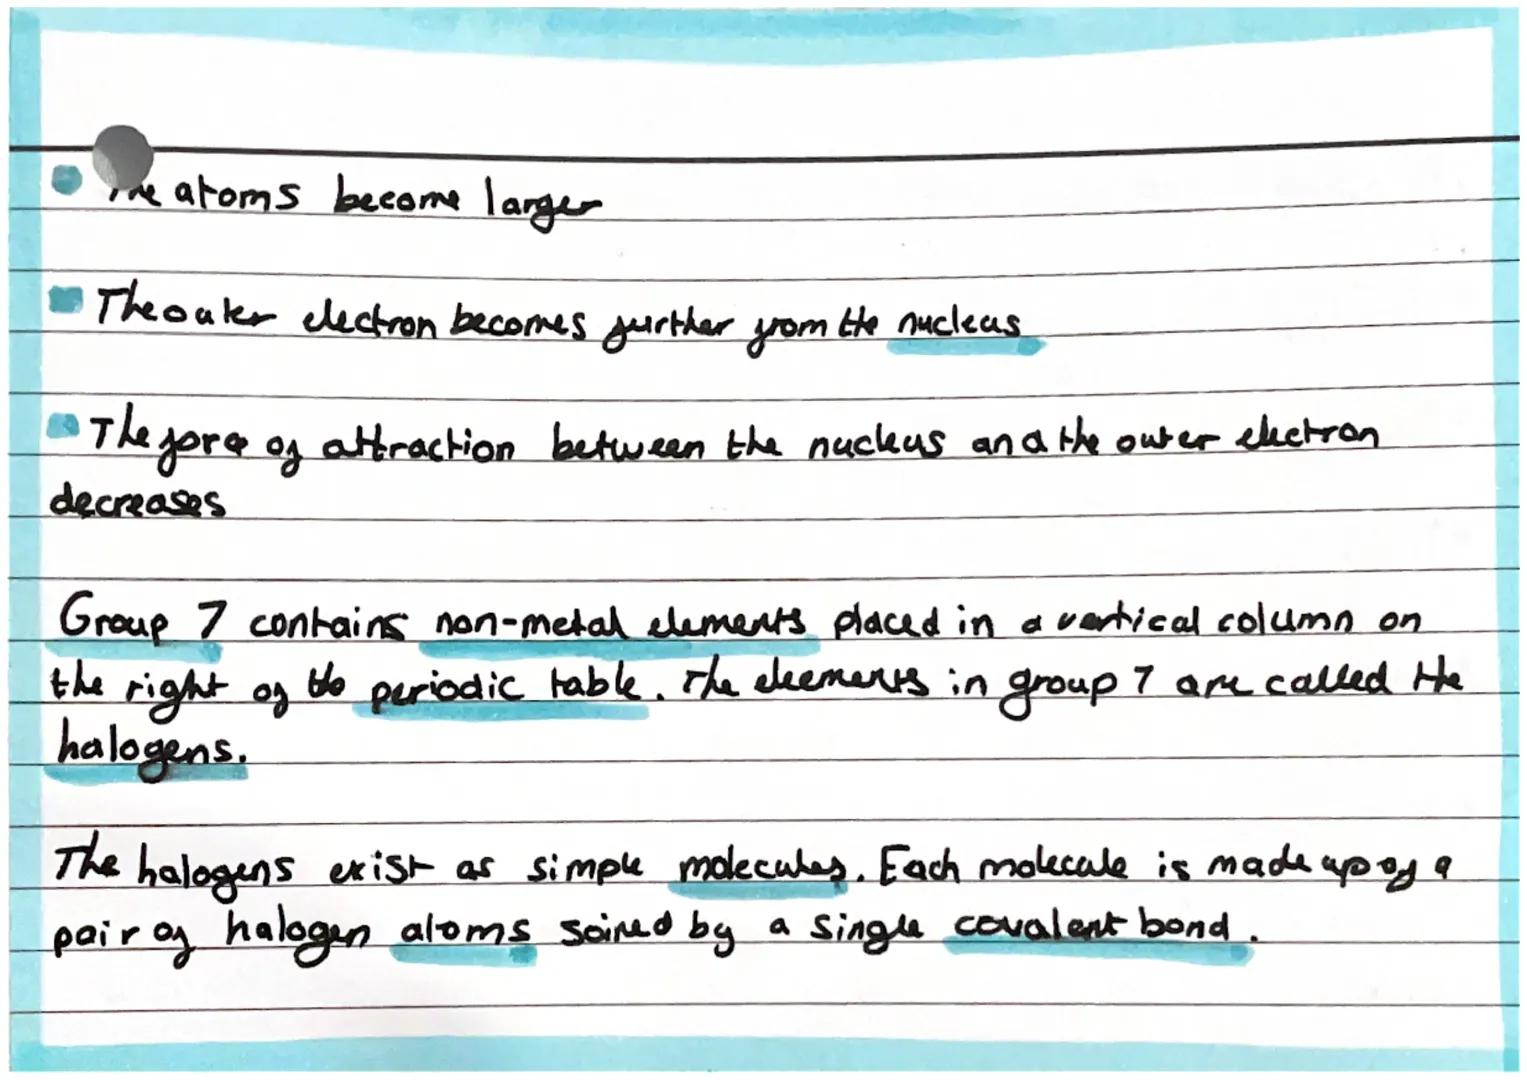 The atoms become larger
The outer electron becomes further from the nucleus
The force of attraction between the nucleus and the outer electron
decreases
Group 7 contains non-metal elements placed in a vertical column on
the right of the periodic table. The elements in group 7 are called the
halogens.
The halogens exist as simple molecules. Each molecule is made up of a
pair of halogen atoms joined by a single covalent bond.